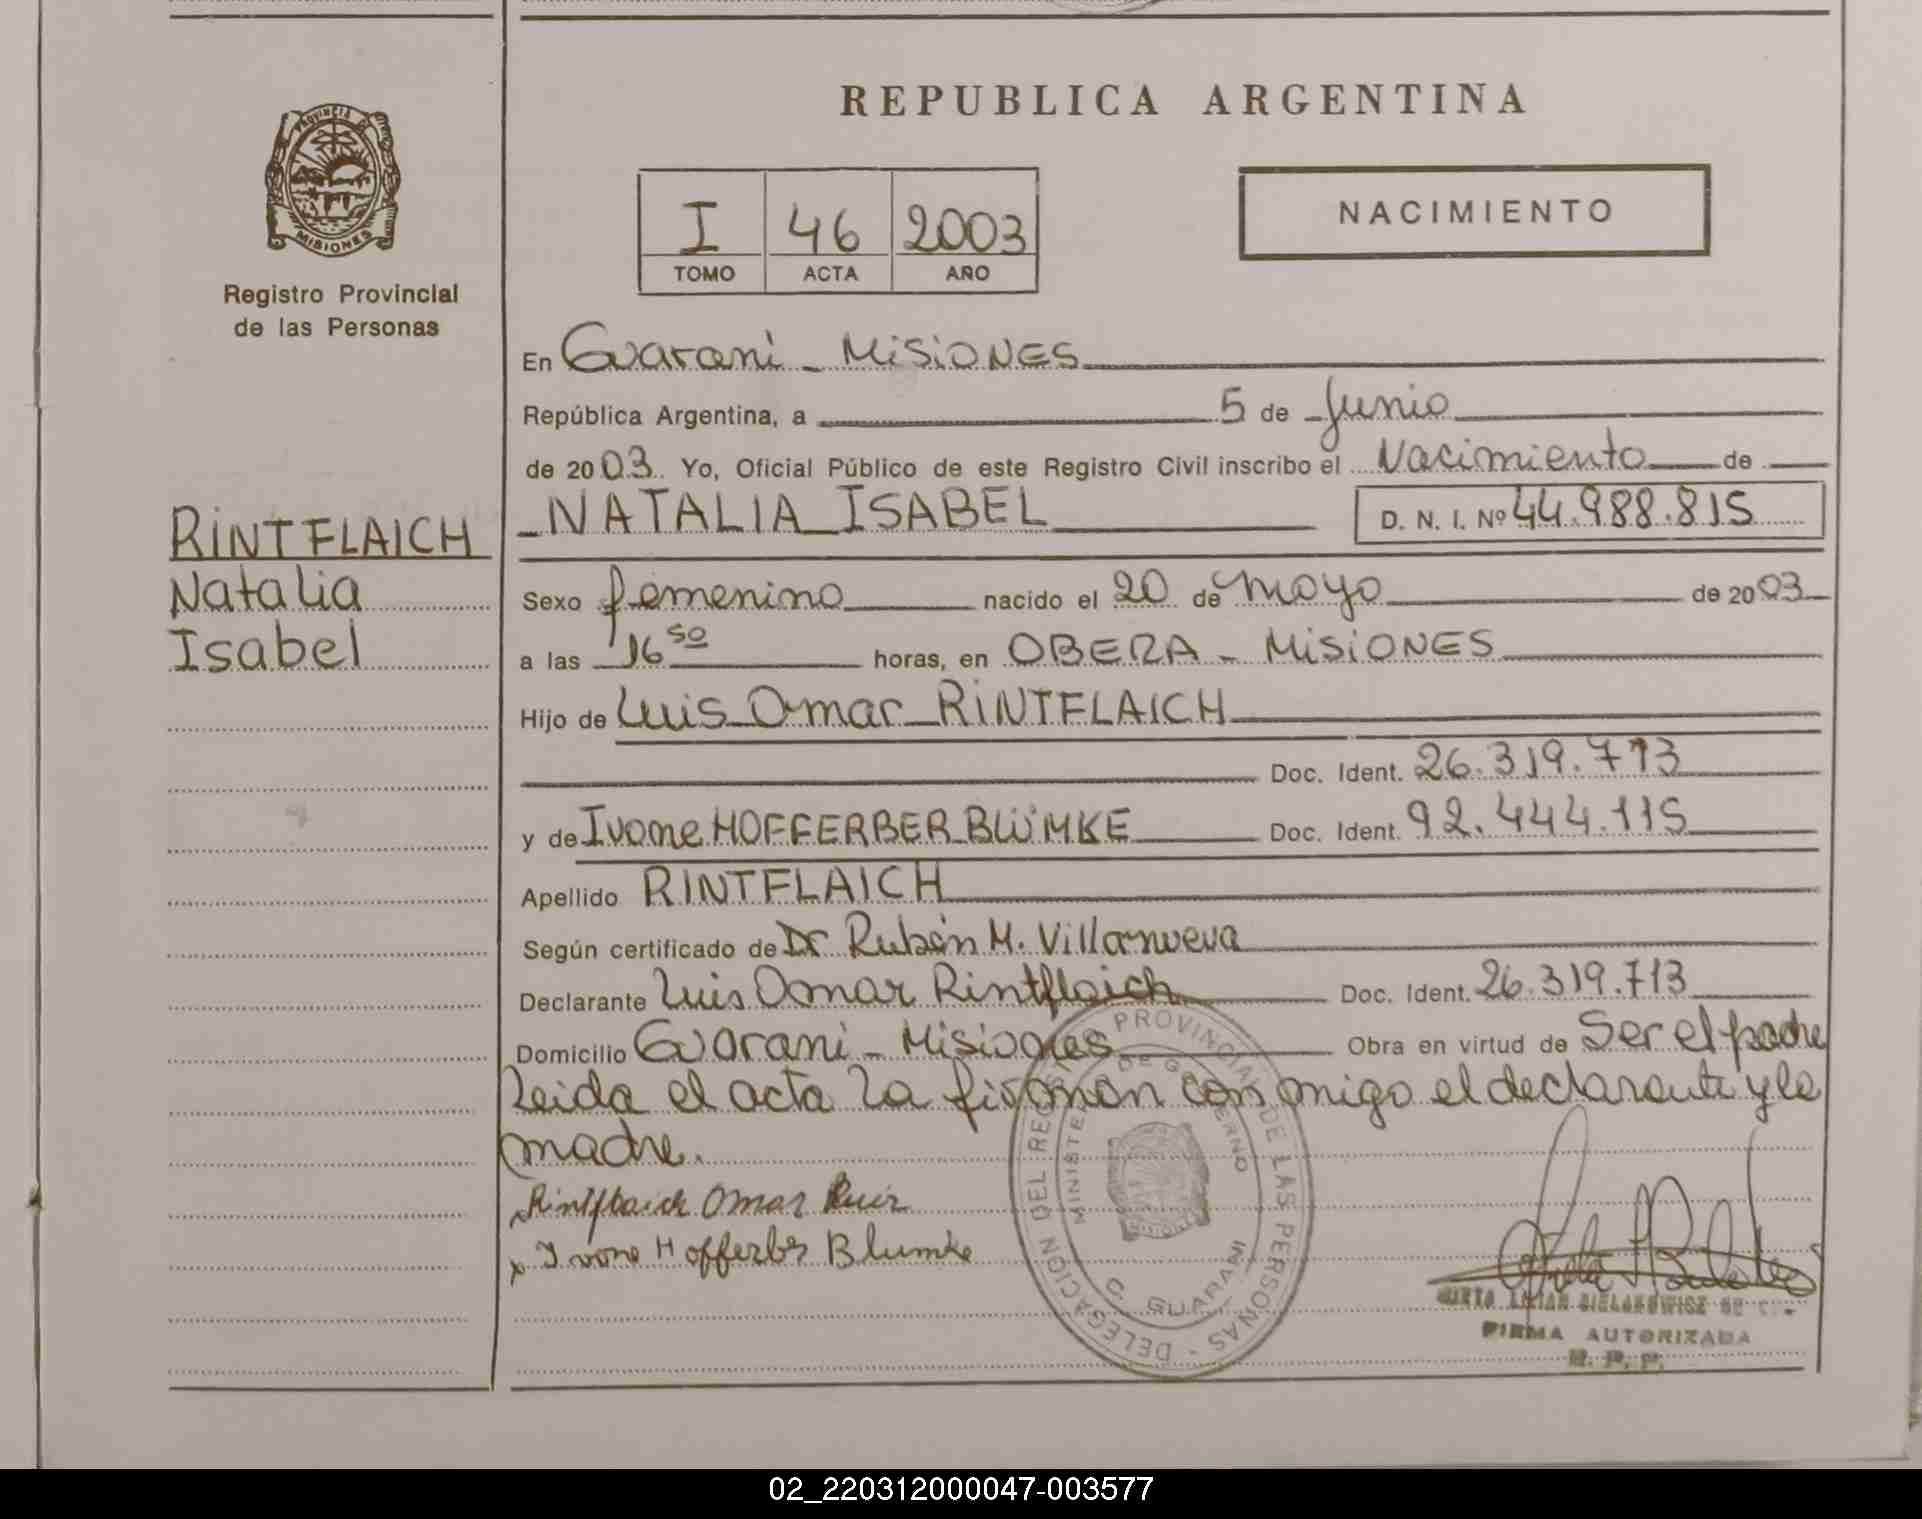 REPUBLICA ARGENTINA
PROVINCIA DE
MISIONES
Registro Provincial
de las Personas
I 46 2003
TOMO ACTA AÑO
NACIMIENTO
En Guarani - MISIONES
República Argentina, a 5 de Junio
de 2003. Yo, Oficial Público de este Registro Civil inscribo el Nacimiento de
NATALIA ISABEL D. N. I. Nº 44.988.815
RINTFLAICH
Natalia
Isabel
Sexo femenino nacido el 20 de mayo de 2003
a las 16 50 horas, en OBERA - MISIONES
Hijo de Luis Omar RINTFLAICH
Doc. Ident. 26.319.713
y de Ivone HOFFERBER BLÜMKE Doc. Ident. 92.444.115
Apellido RINTFLAICH
Según certificado de Dr Rubén M. Villanueva
Declarante Luis Omar Rintflaich Doc. Ident. 26.319.713
Domicilio Guarani - Misiones Obra en virtud de Ser el padre
Leida el acta La firman con migo el declarante y la
madre.
Rintflaich Omar Luis
x Ivone Hofferber Blumke
DELEGACION DEL REGISTRO PROVINCIAL DE LAS PERSONAS -
MINISTERIO DE GOBIERNO
MISIONES
C. GUARANI
FIRMA AUTORIZADA
R. P. P.
02_220312000047-003577